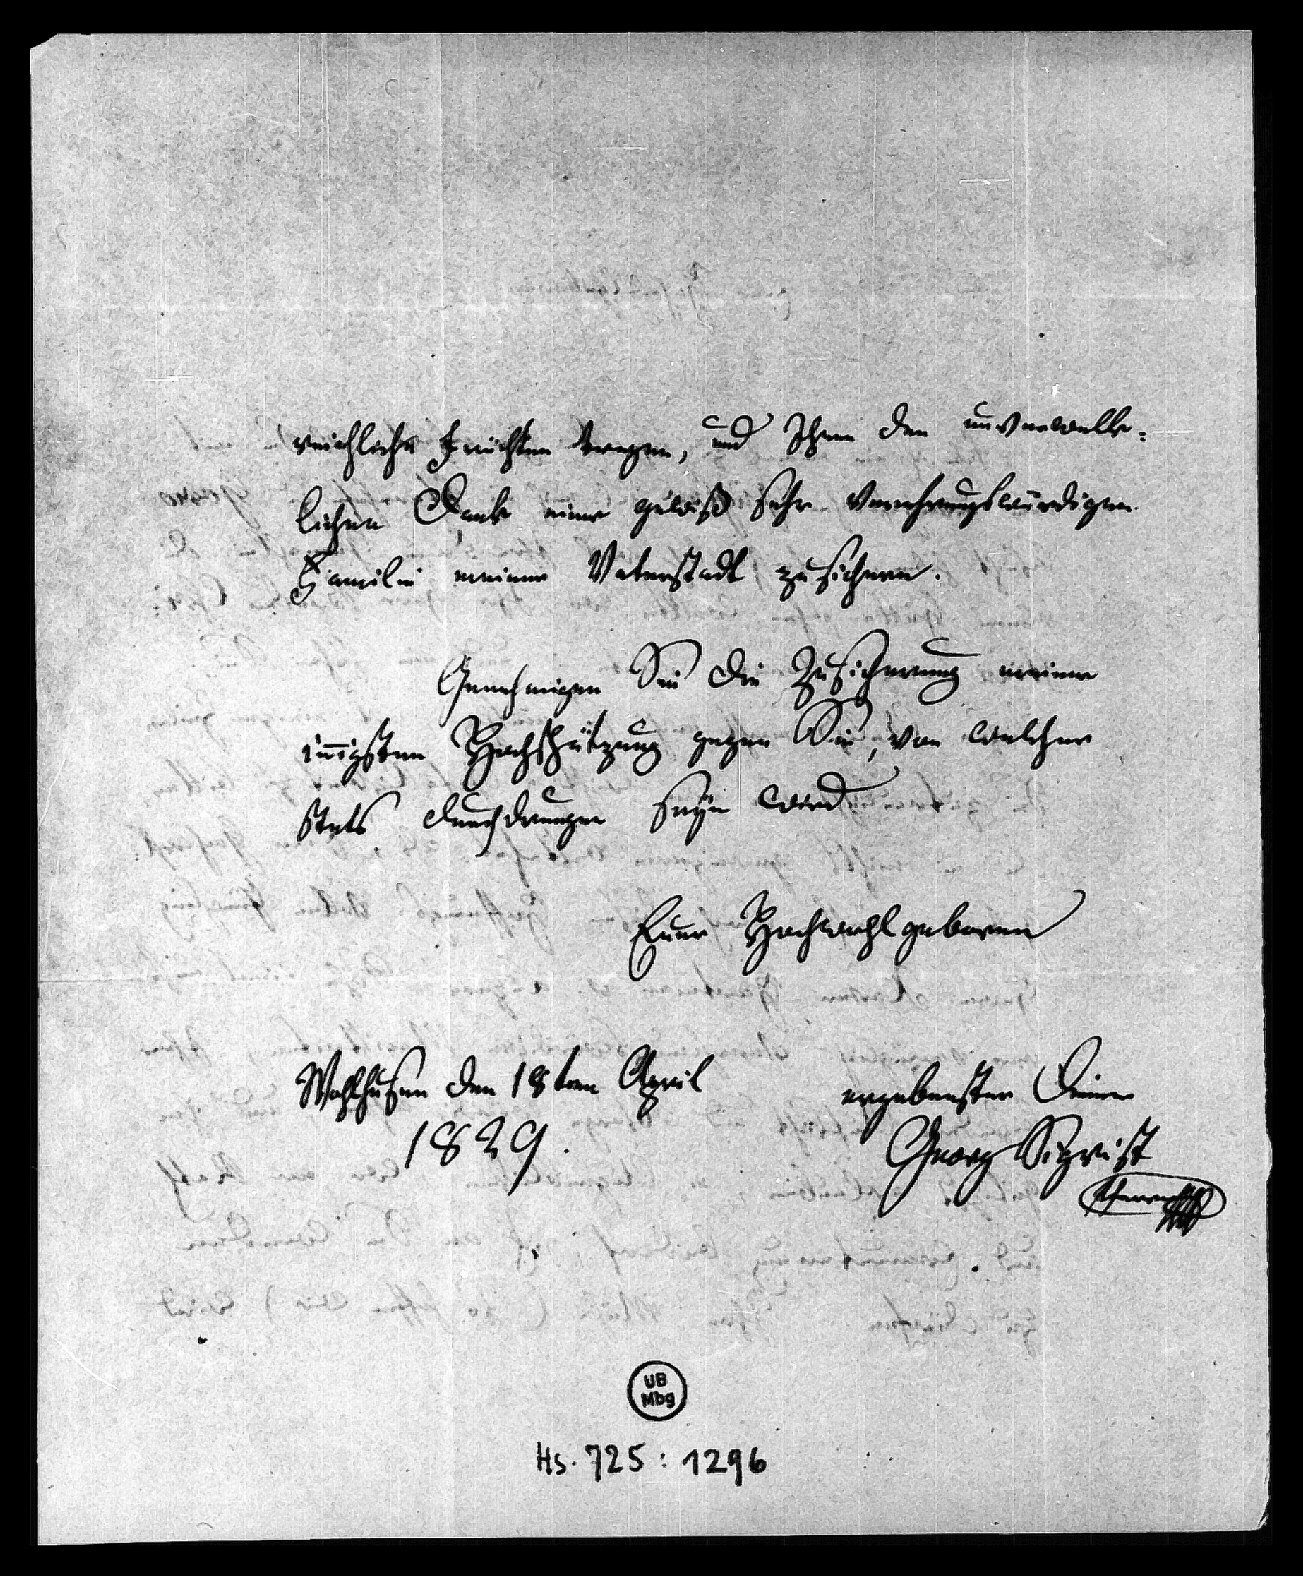 reichliche Früchten tragen, und Ihnen den unverwelk-
lichen Dank einer gewiß sehr verehrungswürdigen
Familie meiner Vaterstadt zusichern.
Genehmigen Sie die Zusicherung meiner
innigsten Hochschätzung gegen Sie, von welcher
stets durchdrungen seÿn wird
Euer Hochwohlgeboren
Wohlhusen den 18ten April
1829.
ergebenster Diener
Georg Sigrist
UB
Mbg
Hs. 725 : 1296